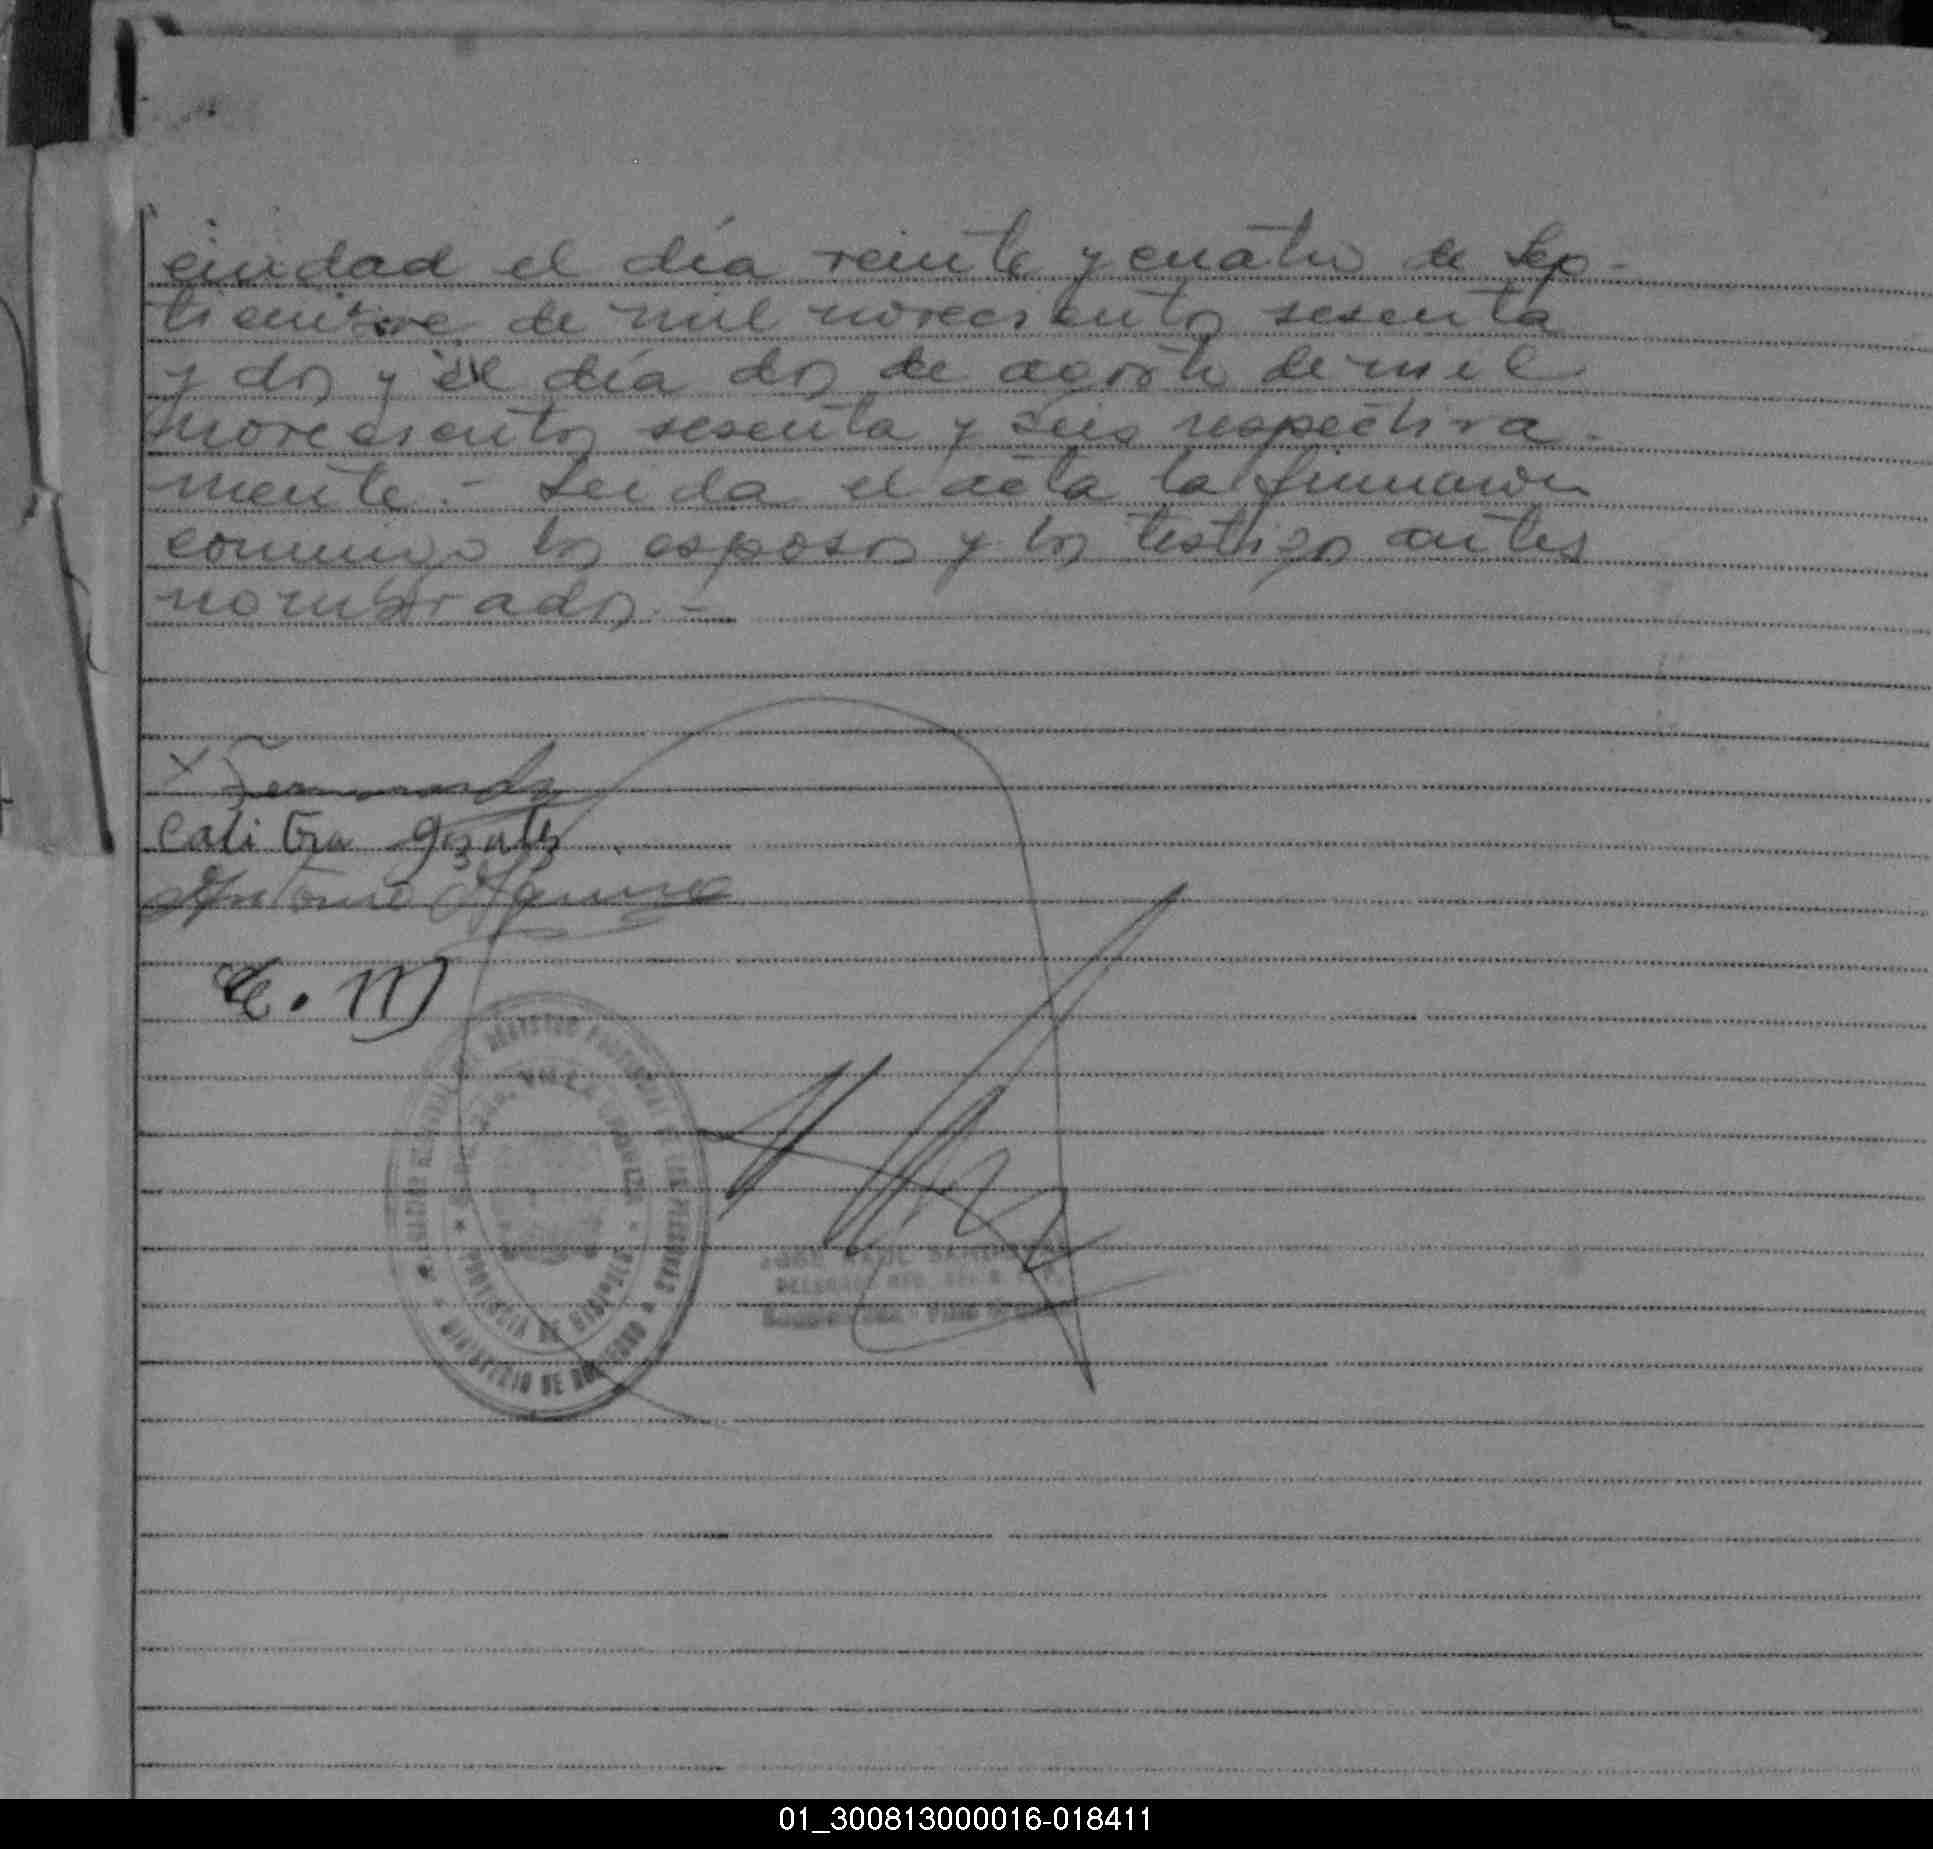 ciudad el día veinte y cuatro de Sep-
tiembre de mil novecientos sesenta
y dos y el día dos de agosto de mil
novecientos sesenta y seis respectiva-
mente.- Leida el acta la firmaron
conmigo los esposos y los testigos antes
nombrados.-
X Fernandez
Antonio
E. M
REGISTRO PROVINCIAL DE LAS PERSONAS
MINISTERIO DE GOBIERNO
PROVINCIA DE
JOSE RAUL
01_300813000016-018411